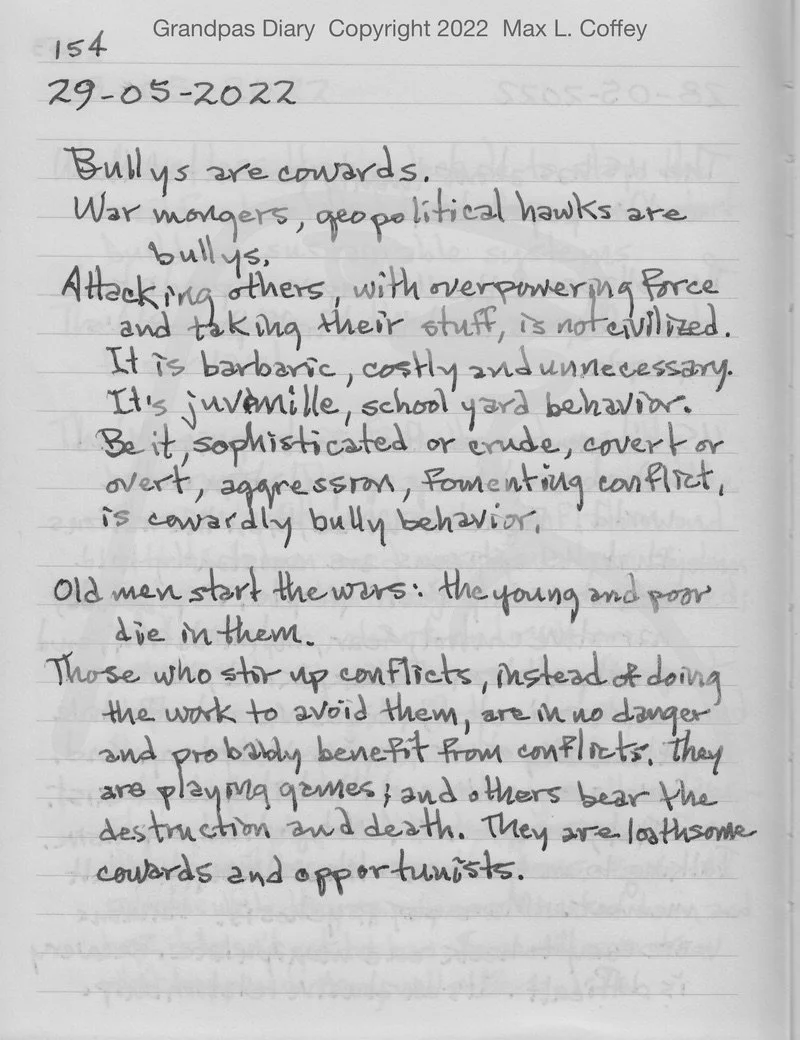 Grandpas Diary Copyright 2022 Max L. Coffey
154
29-05-2022
Bullys are cowards.
War mongers, geopolitical hawks are
bullys.
Attacking others, with overpowering force
and taking their stuff, is not civilized.
It is barbaric, costly and unnecessary.
It's juvenille, school yard behavior.
Be it, sophisticated or crude, covert or
overt, aggression, fomenting conflict,
is cowardly bully behavior.
Old men start the wars: the young and poor
die in them.
Those who stir up conflicts, instead of doing
the work to avoid them, are in no danger
and probably benefit from conflicts. They
are playing games; and others bear the
destruction and death. They are loathsome
cowards and opportunists.